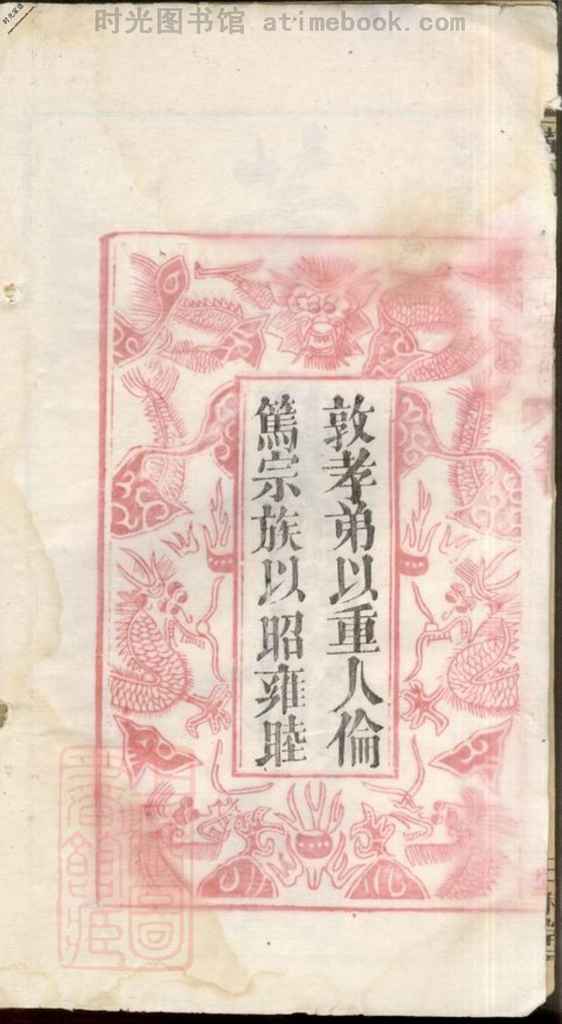 时光图书馆 atimebook.com
敦孝弟以重人倫
篤宗族以昭雍睦